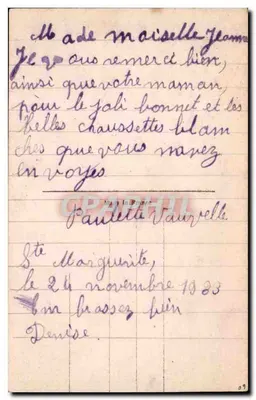 Mademoiselle Jeanne
Je vous remerci bien,
ainsi que votre maman,
pour le joli bonnet et les
belles chaussettes blan
ches que vous mavez
envoyés
Paulette Vauvelle
Ste Marguerite,
le 24 novembre 1933
Embrassez bien
Denise.